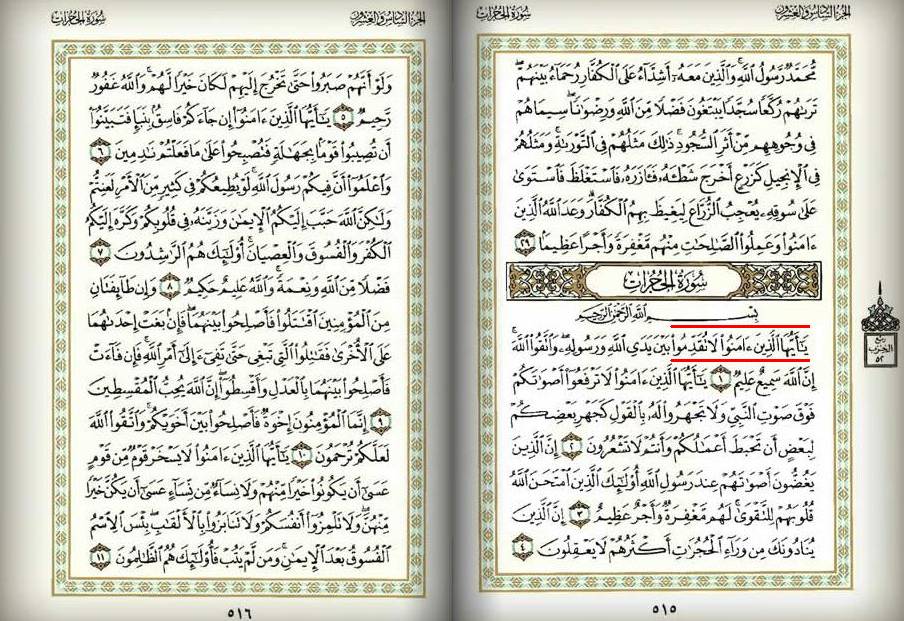 سورة الحجرات
الجزء السادس والعشرون
محمد رسول الله والذين معه أشداء على الكفار رحماء بينهم
تربهم ركعا سجدا يبتغون فضلا من الله ورضونا سيماهم
في وجوههم من أثر السجود ذلك مثلهم في التورية ومثلهم
في الإنجيل كزرع أخرج شطئه فئازره فاستغلظ فاستوى
على سوقه يعجب الزراع ليغيظ بهم الكفار وعد الله الذين
ءامنوا وعملوا الصالحات منهم مغفرة وأجرا عظيما ٢٩
سورة الحجرات
بسم الله الرحمن الرحيم
يأيها الذين ءامنوا لا تقدموا بين يدي الله ورسوله واتقوا الله
إن الله سميع عليم ١ يأيها الذين ءامنوا لا ترفعوا أصوتكم
فوق صوت النبي ولا تجهروا له بالقول كجهر بعضكم
لبعض أن تحبط أعملكم وأنتم لا تشعرون ٢ إن الذين
يغضون أصوتهم عند رسول الله أولئك الذين امتحن الله
قلوبهم للتقوى لهم مغفرة وأجر عظيم ٣ إن الذين
ينادونك من وراء الحجرات أكثرهم لا يعقلون ٤
٥١٥
ربع
الحزب
٥٢
سورة الحجرات
الجزء السادس والعشرون
ولو أنهم صبروا حتى تخرج إليهم لكان خيرا لهم والله غفور
رحيم ٥ يأيها الذين ءامنوا إن جاءكم فاسق بنبإ فتبينوا
أن تصيبوا قوما بجهلة فتصبحوا على ما فعلتم ندمين ٦
واعلموا أن فيكم رسول الله لو يطيعكم في كثير من الأمر لعنتم
ولكن الله حبب إليكم الإيمن وزينه في قلوبكم وكره إليكم
الكفر والفسوق والعصيان أولئك هم الرشدون ٧
فضلا من الله ونعمة والله عليم حكيم ٨ وإن طائفتان
من المؤمنين اقتتلوا فأصلحوا بينهما فإن بغت إحدىهما
على الأخرى فقتلوا التي تبغي حتى تفيء إلى أمر الله فإن فاءت
فأصلحوا بينهما بالعدل وأقسطوا إن الله يحب المقسطين
٩ إنما المؤمنون إخوة فأصلحوا بين أخويكم واتقوا الله
لعلكم ترحمون ١٠ يأيها الذين ءامنوا لا يسخر قوم من قوم
عسى أن يكونوا خيرا منهم ولا نساء من نساء عسى أن يكن خيرا
منهن ولا تلمزوا أنفسكم ولا تنابزوا بالألقب بئس الاسم
الفسوق بعد الإيمن ومن لم يتب فأولئك هم الظلمون ١١
٥١٦